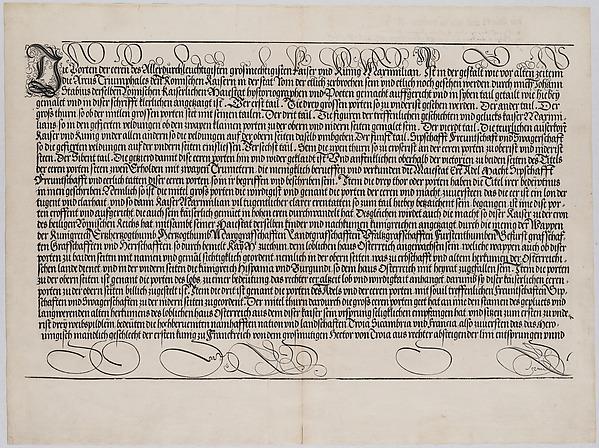 Die Porten der eeren des Allerdurchleuchtigisten grosmechtigisten Kaiser vnd Kunig Maximilian. Ist in der gestalt wie vor alten zeitenn
die Arcus Triumphales den Römischen Kaisern in der stat Rom der etlich zerbrochen sein vnd etlich noch gesehen werden durch mich Johann
Stabius derselben Römischen Kaiserlichen Maiestat historiographen vnd Poeten gemacht aufgericht vnd in siben tail getailt wie hie bey
gemalet vnd in diser schrifft klerlichen angezaigt ist. Der erst tail. Die drey grossen porten so zu vnderist gesehen werden. Der ander tail. Der
groß thurn so ob der mitlen grossen porten stet mit seinen tailen. Der drit tail. Die figuren der treffenlichen geschichten vnd gelucks kaiser Maximi-
lians so in den gefierten veldungen ob den zwayen klainen porten zu der obern vnd vndern seiten gemalet sein. Der vierdt tail. Die teurlichen
Kaiser vnd Kunig vnder allen andern so die veldungen auf der obern seiten deßelb vmbgeben. Der funft tail. Sypschafft Freuntschafft vnd Swagerschafft
so die gefierten veldungen auf der vndern seiten einfliessen. Der sechst tail. Sein die zwen thurn so zu eusserist an der eeren porten zu oberist vnd vnderist
steen. Der Sibent tail. Die gezierd damit dise eeren porten hin vnd wider geklaidt ist. Vnd anfenklichen oberhalb der victorien zu beiden seiten des Titels
der eeren porten steen zwen Erholden mit zwayen Trumetern, die menigklich berueffen vnd verkunden die Maiestat Eer Adel Macht Sypschafft
Freuntschafft vnd eerlich tatten diser eeren porten so ir begreiffen vnd beschreiben. Item die drey thor oder porten haben die Titel irer bedeuttnus
in inen geschriben. Nemlich so ist die mittl groß porten die wirdigist vnd genant die porten der eeren vnd macht
tugent vnd clarhait, vnd so dann kaiser Maximilian vil tugentlicher clarer eerntatten so zum tail hiebey bezaichent sein begangen ist ime dise por-
ten eroffent vnd aufgericht, die auch sein kaiserlich gemüet in hohen eren durchwandelt hat. Desgleichen wirdet auch die macht so diser Kaiser zu der eron
des heiligen Römischen Reichs hat, mitsambt seiner Haußstat derselben kinder vnd nachkumen kunigrichen angezaigt durch die menig der Wappen
der Kunigreich Ertzhertzogthumb Hertzogthumb Margrafschafften Landgrafschafften Pfaltzgrafschafften Furstenthumben Gefurst grafschaf-
ten Grafschafften vnd Herrschafften so durch bemelt Kay. M. zuethun dem löblichen haus Osterreich angewachsen sein, welche wappen auch ob diser
porten zu baiden seiten mit namen vnd gemäl sichtigklich geordent nemlich in der obern seiten, was zu erbschafft vnd altem herkumen der Osterreichi-
schen lande dienet vnd in der vndern seiten die kunigreich Hispania vnd Burgundi, so dem haus Osterreich mit heyrat zugefallen sein. Item die porten
zu der obern seiten ist genant die porten des lobs, zu einer bedeuttung das rechter erzalzeit lob vnd wirdigkait anhangt, darumb ist diser kaiserlichen eeren
porten zu der obern seitten billich zugestelt ist. Item die drit ist genant die porten des Adels vnd der eeren porten mit souil treffenlichen Freuntschafften Syp-
schafften vnd Swagerschafften zu der vndern seiten zugeordent. Der mittel thurn dardurch die groß eeren porten geet hat an ime den stammen des geplüets vnd
langwerenden alten herkumens des loblichen haus Osterreich aus dem diser kaiser sein vrsprung seligklichen empfangen hat, vnd sitzen zum ersten zu vnde-
rist drey weibspilden, bedeuten die hochberuemten namhafften nation vnd landschafften Troia Sicambria vnd Francia also zuuersteen das das Mero-
uingisch manndlich geschlecht der ersten kunig zu Franckreich von dem grosmutigen Hector von Troia aus rechter absteigender lini entsprungen vnnd